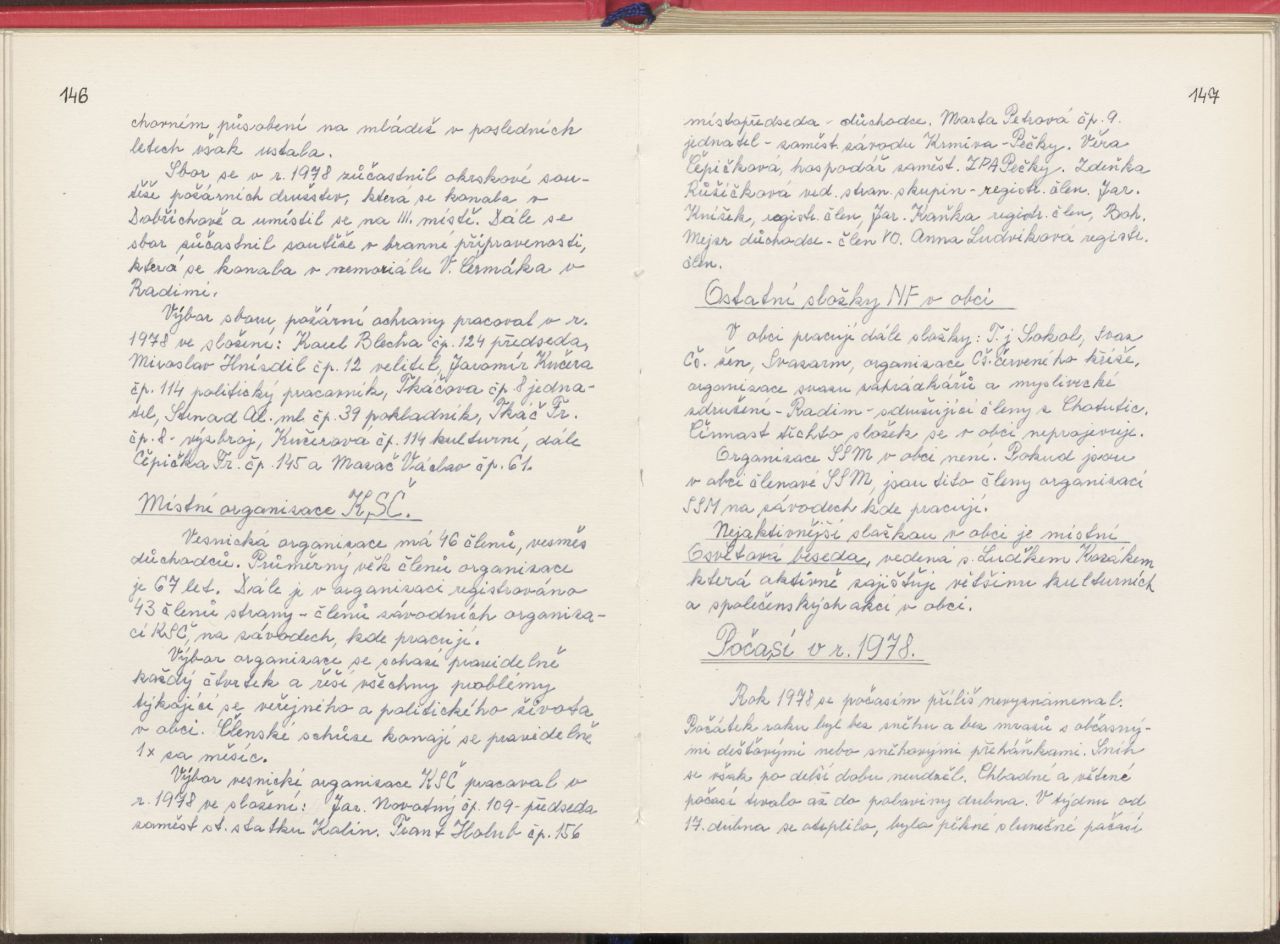 146
chovném působení na mládež v posledních
letech však ustala.
Sbor se v r. 1978 zúčastnil okrskové sou-
těže požárních družstev, která se konala v
Dobřichově a umístil se na III. místě. Dále se
sbor zúčastnil soutěže v branné připravenosti,
která se konala v memoriálu V. Čermáka v
Radimi.
Výbor sboru požární ochrany pracoval v r.
1978 ve složení: Karel Blecha čp. 124 předseda,
Miroslav Hnízdil čp. 12 velitel, Jaromír Kučera
čp. 114 politický pracovník, Tkáčova čp. 8 jedna-
tel, Stinad Al. ml. čp. 39, pokladník, Tkáč Fr.
čp. 8 - výzbroj, Kučerova čp. 114 kulturní, dále
Čěpička Fr. čp. 145 a Mazač Václav čp. 61.
Místní organizace KSČ.
Vesnická organizace má 46 členů, vesměs
důchodců. Průměrny věk členů organizace
je 67 let. Dále je v organizaci registrováno
43 členů strany - členů závodních organiza-
cí KSČ, na závodech, kde pracují.
Výbor organizace se schází pravidelně
každý čtvrtek a řěší všechny problémy
týkající se veřejného a politického života
v obci. Členské schůze konají se pravidelně
1x za měsíc.
Výbor vesnické organizace KSČ pracoval v
r. 1978 ve složení: Jar. Novotný čp. 109 - předseda
zaměst. st. statku Kolín. Frant Holub čp. 156
147
místopředseda - důchodce. Marta Petrová čp. 9.
jednatel - zaměst. závodu Krmiva - Pečky. Věra
Čepičková, hospodář zaměst. ZPA Pečky. Zdeňka
Růžičková ved. stran. skupin - registr. člen. Jar.
Knížek, registr. člen, Jar. Kaňka registr. člen, Boh.
Mejzr důchodce - člen VO. Anna Ludvíková registr.
člen.
Ostatní složky NF v obci
V obci pracují dále složky: T. j Sokol, Svaz
Čs. žen, Svazarm, organizace Čs. červeného kříže,
organizace svazu zahrádkářů a myslivecké
sdružení - Radim - sdružující členy z Chotutic.
Činnost těchto složek se v obci neprojevuje.
Organizace SSM v obci není. Pokud jsou
v obci členové SSM, jsou tito členy organizací
SSM na závodech kde pracují.
Nejaktivnější složkou v obci je místní
Osvětová beseda, vedená s. Luďkem Kozákem
která aktivně zajišťuje většinu kulturních
a společenských akcí v obci.
Počasí v r. 1978.
Rok 1978 se počasím příliš nevyznamenal.
Počátek roku byl bez sněhu a bez mrazů s občasný-
mi dešťovými nebo sněhovými přeháňkami. Sníh
se však po delší dobu neudržěl. Chladné a větrné
počasí trvalo až do poloviny dubna. V týdnu od
17. dubna se oteplilo, bylo pěkné slunečné počasí